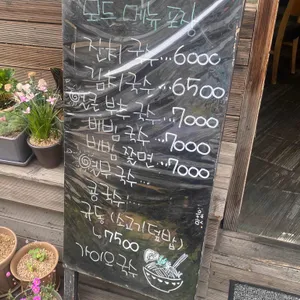 모두 메뉴 포장
잔치 국수...6000
김치국수...6500
부추 국수...7000
비빔 국수...7000
비빔 쫄면...7000
열무국수...
콩국수...
규동(소고기덮밥)
↳7500
국수